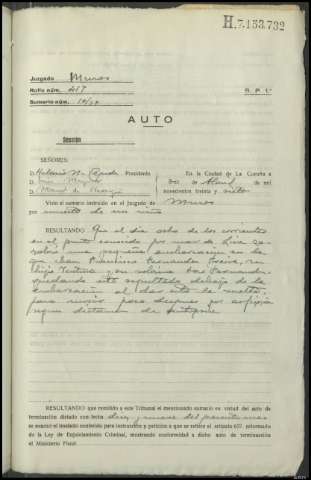 H.7.153.732
Juzgado Muros
Rollo núm. 217
R. P. 1.ª
Sumario núm.
AUTO
Sección
SEÑORES:
D. Presidente
D.
D. Manuel
En la Ciudad de La Coruña a
de Abril de mil
novecientos treinta y siete
Visto el sumario instruído en el juzgado de Muros
por muerte de un niño
RESULTANDO Que el día ocho de los corrientes
en el punto conocido por mar de Lira
una pequeña embarcación en la
que iban Francisco Fernandez
hijo y su sobrino José Fernandez
quedando este sepultado debajo de la
embarcación al dar esta la vuelta,
para morir después por asfixia
segun dictamen de autopsia
RESULTANDO que remitido a este Tribunal el mencionado sumario en virtud del auto de
terminación dictado con fecha diez y nueve del presente mes
se evacuó el traslado conferido para instrucción y petición a que se refiere el artículo 627, reformado
de la Ley de Enjuiciamiento Criminal, mostrando conformidad a dicho auto de terminación
el Ministerio Fiscal.